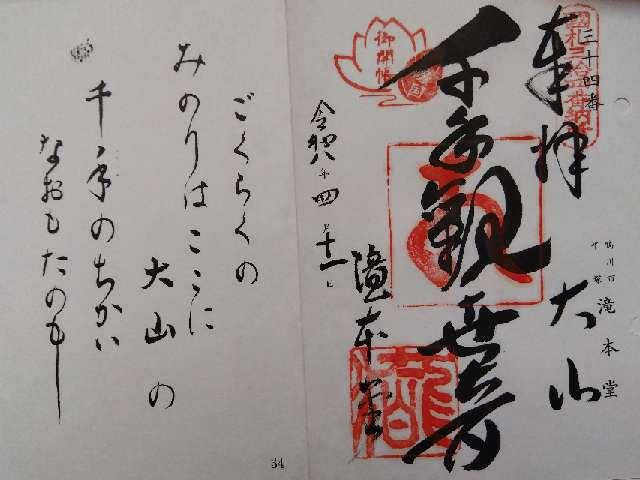 三十四番
奉拝
大山
滝本堂
千手観世音
御開帳
令和八年四月十一日
滝本堂
ごくらくの
みのりはここに
大山の
千手のちかい
なおもたのもし
34